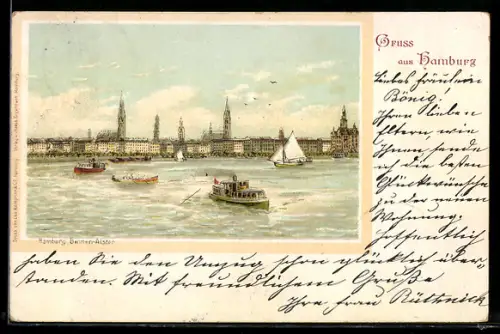 Gruss
aus Hamburg
Liebes Fräulein
Bönig!
Ihren lieben
Eltern, wie
Ihnen sende
ich die besten
Glückwünsche
zu der neuen
Wohnung;
hoffentlich
haben Sie den Umzug schon glücklich über-
standen. Mit freundlichem Gruße
Ihre frau
Hamburg, Binnen-Alster